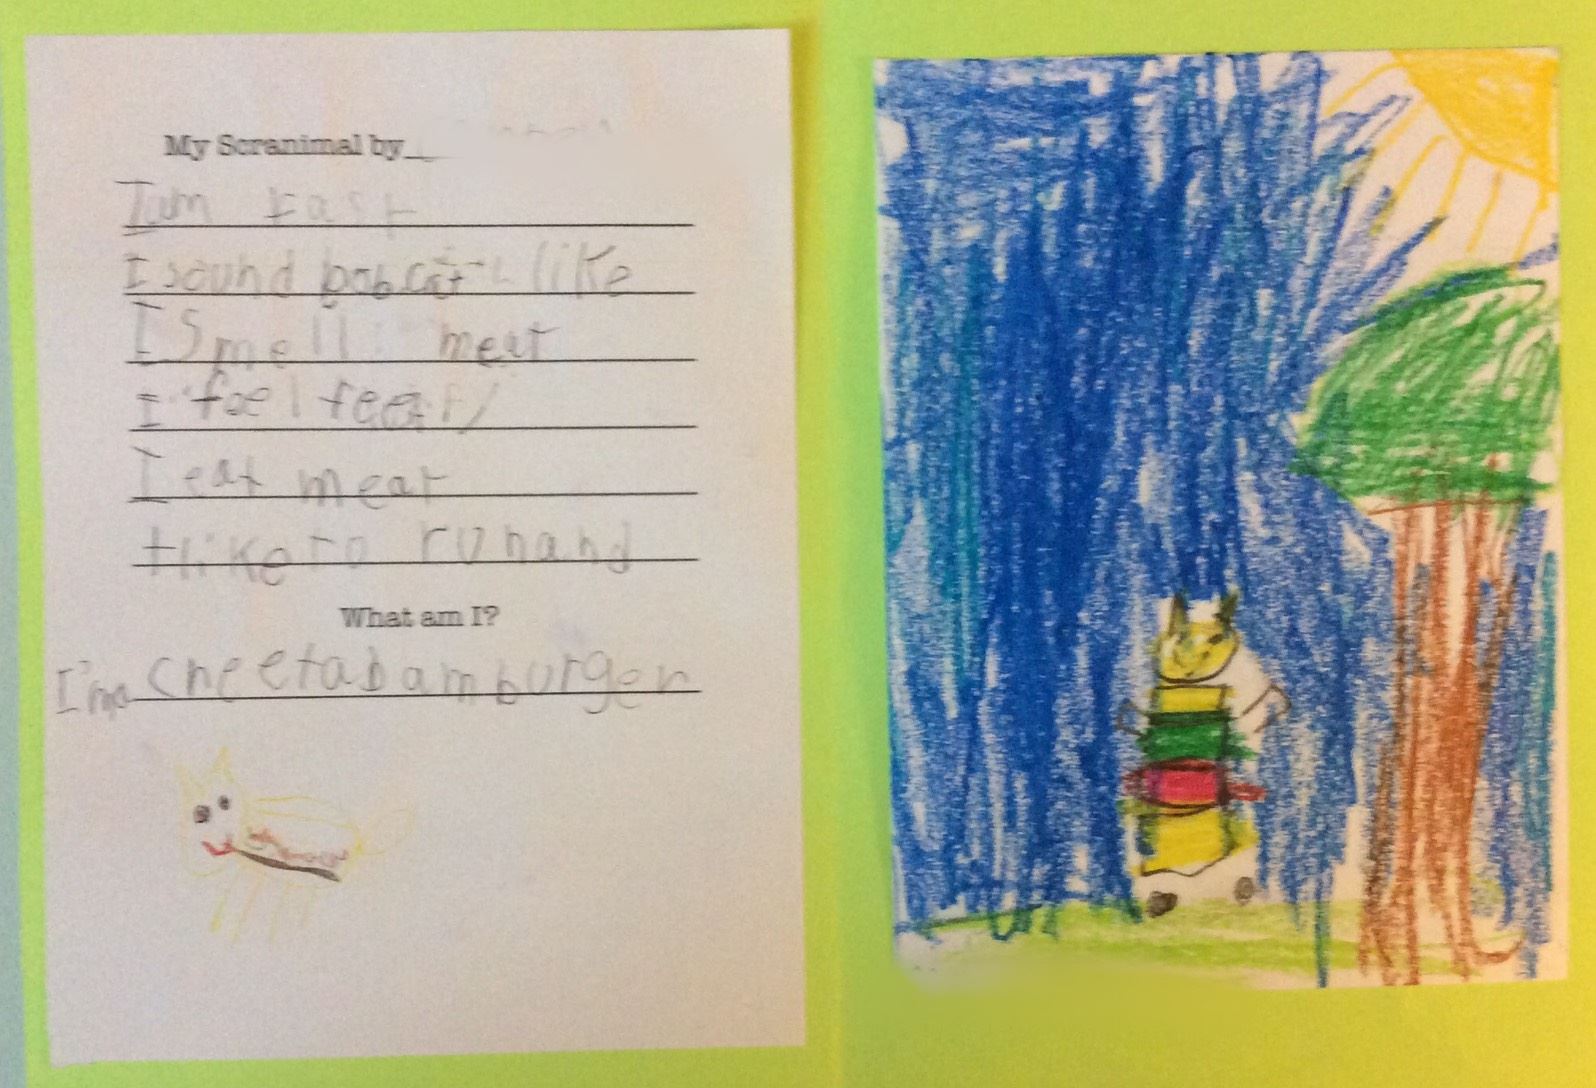 My Scranimal by
I am fast
I sound bobcat like
I smell meat
I feel
I eat meat
I like to run and
What am I?
I'm a cheetabamburger